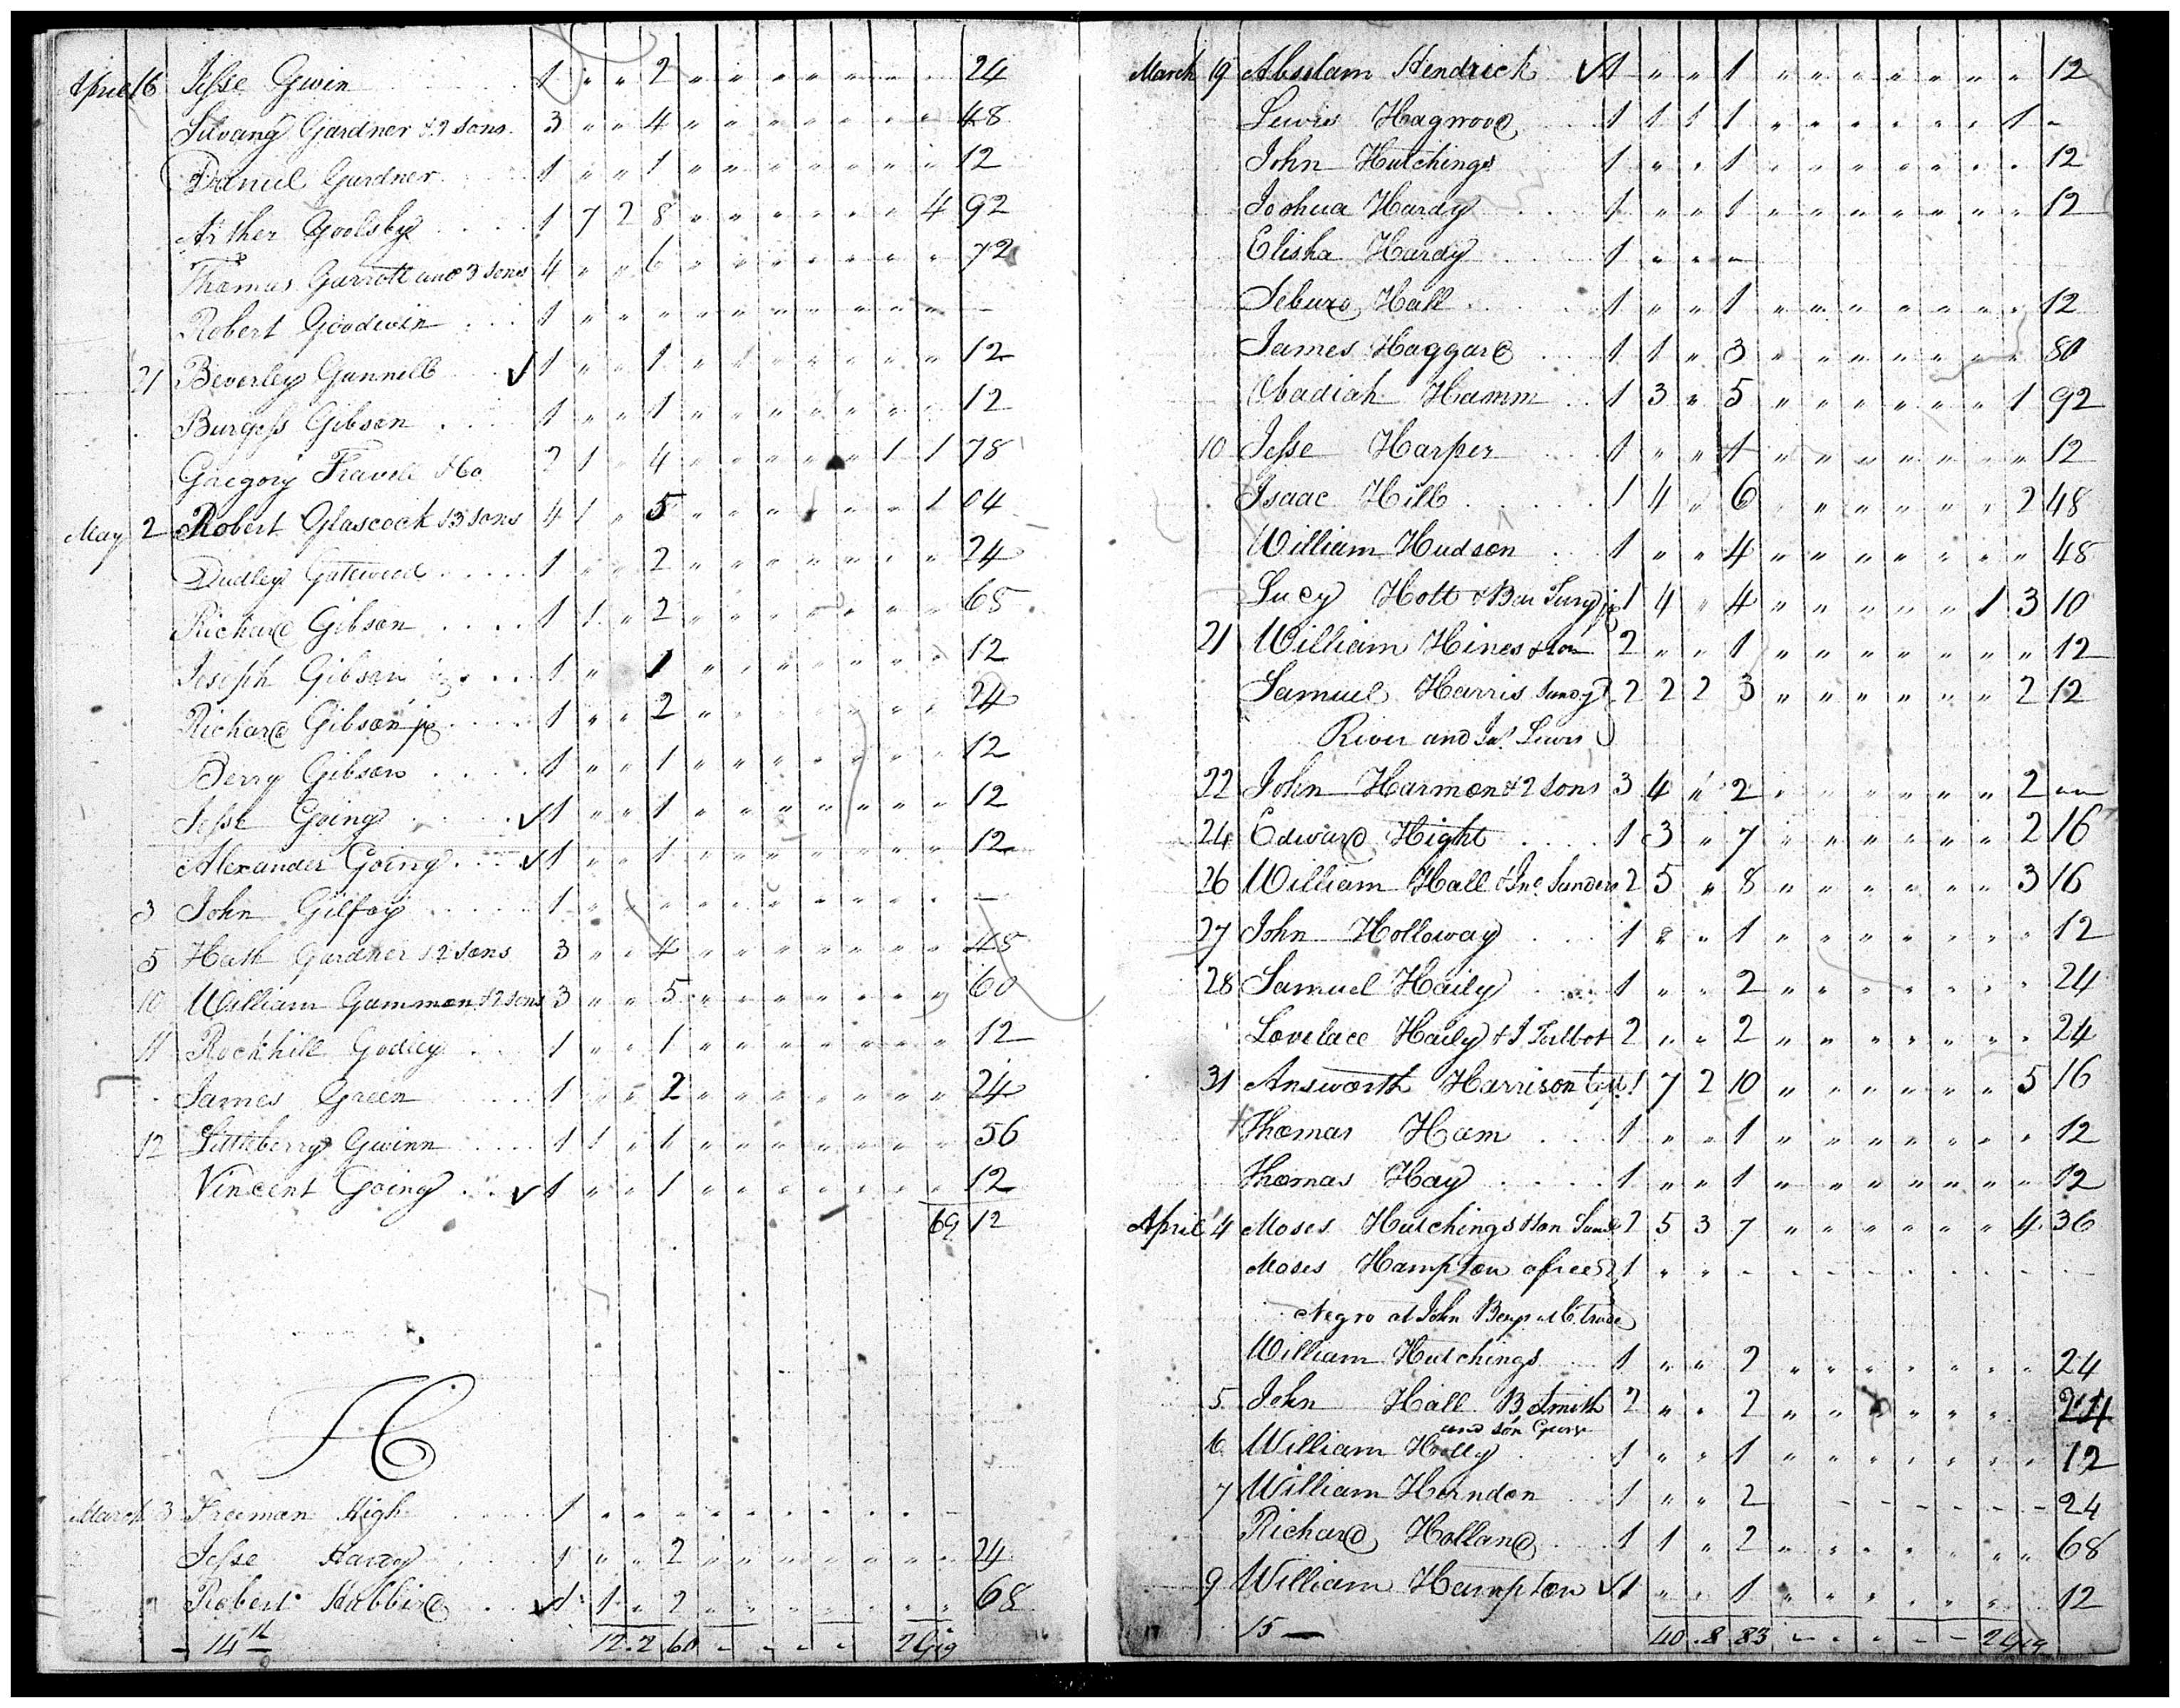 April 16 Jesse Gwin 1 " " 2 " " " " " " " 24
Silvany Gardner & 2 sons 3 " " 4 " " " " " " " 48
Daniel Gardner 1 " " 1 " " " " " " " 12
Arther Goolsby 1 7 2 8 " " " " " " 4 92
Thomas Garrott and 3 sons 4 " " 6 " " " " " " " 72
Robert Goodwin 1 " " " " " " " " " " –
21 Beverley Gunnell ✓ 1 " " 1 " " " " " " " 12
Burgess Gibson 1 " " 1 " " " " " " " 12
Gregory 2 1 " 4 " " " " " 1 1 78
May 2 Robert Glascock & 3 sons 4 1 " 5 " " " " " " 1 04
Dudley Gatewood 1 " " 2 " " " " " " " 24
Richard Gibson 1 1 " 2 " " " " " " " 68
Joseph Gibson 1 " 1 " " " " " " " 12
Richard Gibson jr 1 " " 2 " " " " " " " 24
Berry Gibson 1 " " 1 " " " " " " " 12
Jesse Going ✓ 1 " " 1 " " " " " " " 12
Alexander Going ✓ 1 " " 1 " " " " " " " 12
3 John Gilfoy 1 " " " " " " " " " " –
5 Heath Gardner & 2 sons 3 " " 4 " " " " " " " 48
10 William Gammon & 2 sons 3 " " 5 " " " " " " " 60
11 Rockhill Godley 1 " " 1 " " " " " " " 12
James Green 1 " " 2 " " " " " " " 24
12 Littleberry Gwinn 1 1 " 1 " " " " " " " 56
Vincent Going ✓ 1 " " 1 " " " " " " " 12
69 12
H
March 3 Freeman High 1 " " " " " " " " " –
Jesse Hardy 1 " " 2 " " " " " " " 24
Robert Hubbard ✓ 1 1 " 2 " " " " " " " 68
– 14 12 . 2 60 – – – – 2
March 19 Absolam Hendrick ✓ 1 " " 1 " " " " " " " 12
Lewis Hagwood 1 1 1 1 " " " " " " 1 –
John Hutchings 1 " " 1 " " " " " " " 12
Joshua Hardy 1 " " 1 " " " " " " " 12
Elisha Hardy 1 " " "
Hall 1 " " 1 " " " " " " " 12
James Haggard 1 1 " 3 " " " " " " " 80
Obadiah Hamm 1 3 " 5 " " " " " " 1 92
10 Jesse Harper 1 " " 1 " " " " " " " 12
Isaac Hill 1 4 " 6 " " " " " " 2 48
William Hudson 1 " " 4 " " " " " " " 48
Lucy Holt & 1 4 " 4 " " " " " 1 3 10
21 William Hines & son 2 " " 1 " " " " " " " 12
Samuel Harris Sandy 2 2 2 3 " " " " " " 2 12
River and Jas. Lewis
22 John Harmon & 2 sons 3 4 " 2 " " " " " " 2 "
24 Edward Hight 1 3 " 7 " " " " " " 2 16
26 William Hall & Jno. Sanders 2 5 " 8 " " " " " " 3 16
27 John Holloway 1 " " 1 " " " " " " " 12
28 Samuel Haily 1 " " 2 " " " " " " " 24
Lovelace Haily & J Talbot 2 " " 2 " " " " " " " 24
31 Answorth Harrison 1 7 2 10 " " " " " " 5 16
Thomas Ham 1 " " 1 " " " " " " " 12
Thomas Hay 1 " " 1 " " " " " " " 12
April 4 Moses Hutchings & son 2 5 3 7 " " " " " " 4 36
Moses Hampton a free 1 " " - - - - - - - - -
Negro at John
William Hutchings 1 " " 2 " " " " " " " 24
5 John Hall B Smith 2 " " 2 " " " " " " 24
and son
6 William Holly 1 " " 1 " " " " " " " 12
7 William Herndon 1 " " 2 - - - - - - 24
Richard Holland 1 1 " 2 " " " " " " " 68
9 William Hampton ✓ 1 " " 1 " " " " " " 12
15 — 40 . 8 83 - - - - - 24